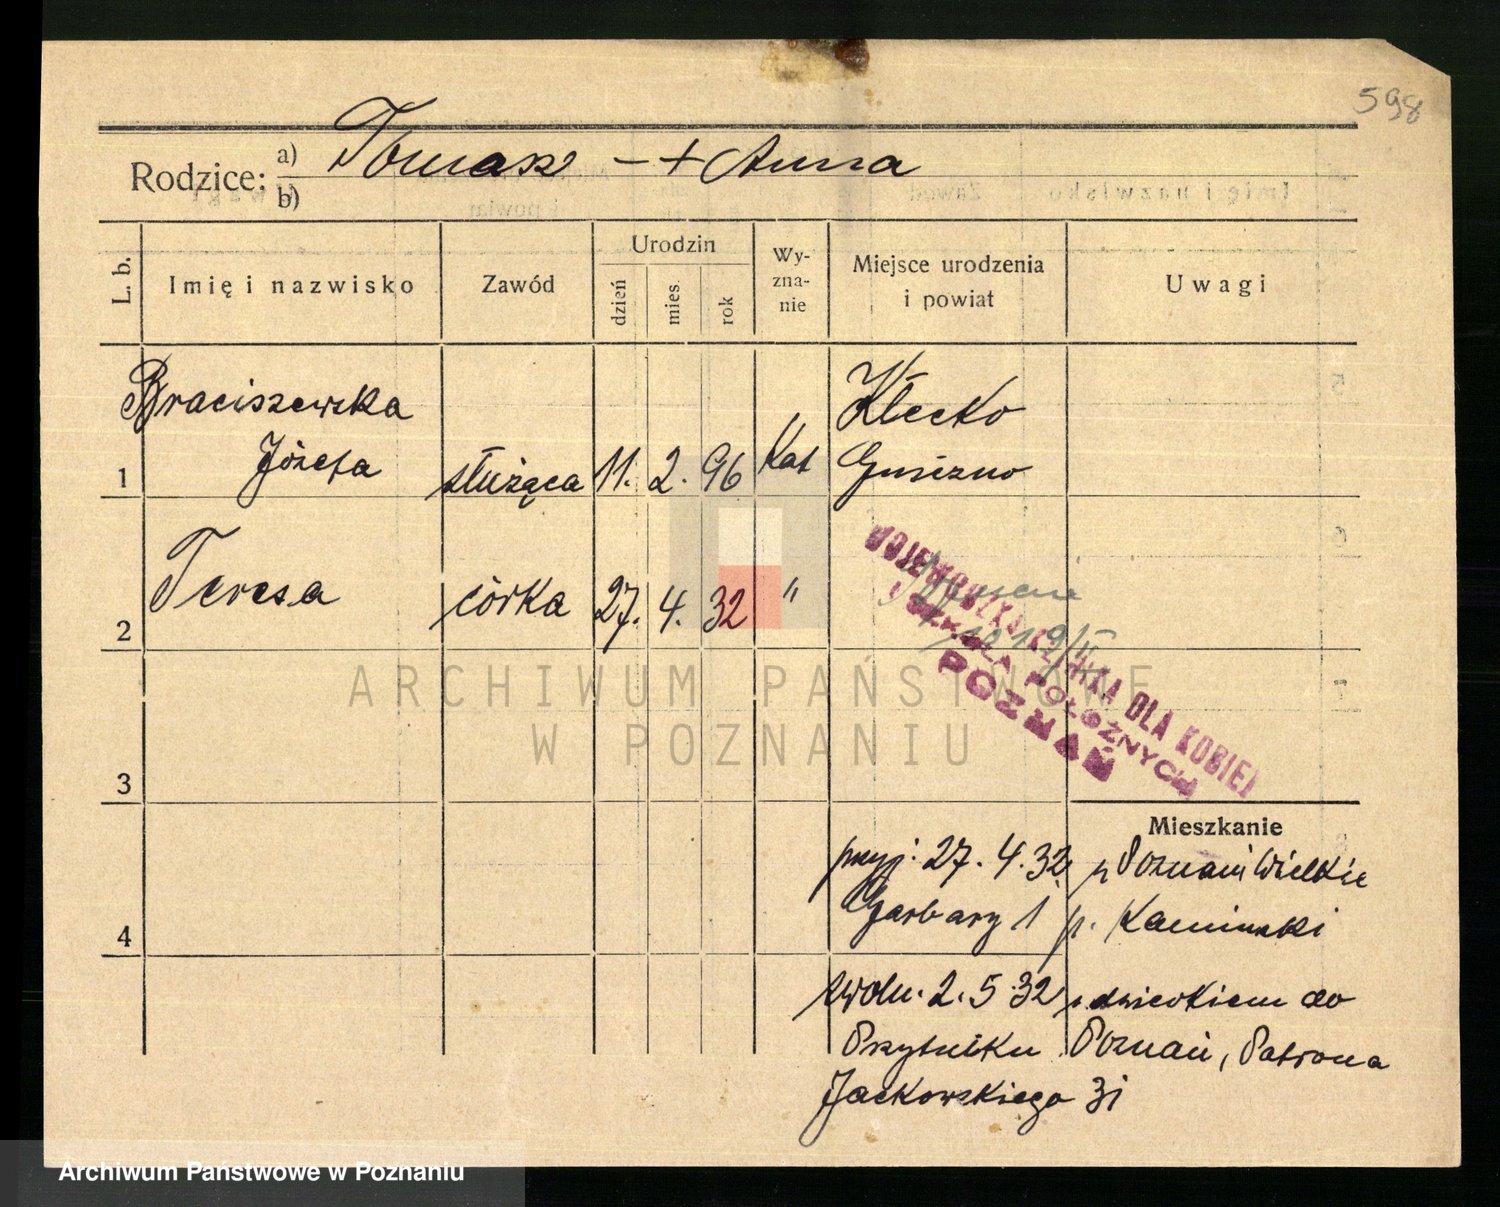 598
Rodzice: a) Tomasz – + Anna
b)
L. b.
Imię i nazwisko
Zawód
Urodzin
dzień
mies.
rok
Wy-
zna-
nie
Miejsce urodzenia
i powiat
Uwagi
Braciszewska
Józefa
1
służąca
11. 2. 96
Kat
Kłecko
Gniezno
2
Teresa
córka
27. 4. 32
"
WOJEWÓDZKA KLINIKA DLA KOBIET
I SZKOŁA POŁOŻNYCH
POZNAŃ
3
Mieszkanie
4
przyj. 27. 4. 32. z Poznań Wielkie
Garbary 1 p. Kamiński
zwoln. 2. 5. 32 z dzieckiem do
Przytułku Poznań, Patrona
Jackowskiego 31
ARCHIWUM PAŃSTWOWE
W POZNANIU
Archiwum Państwowe w Poznaniu